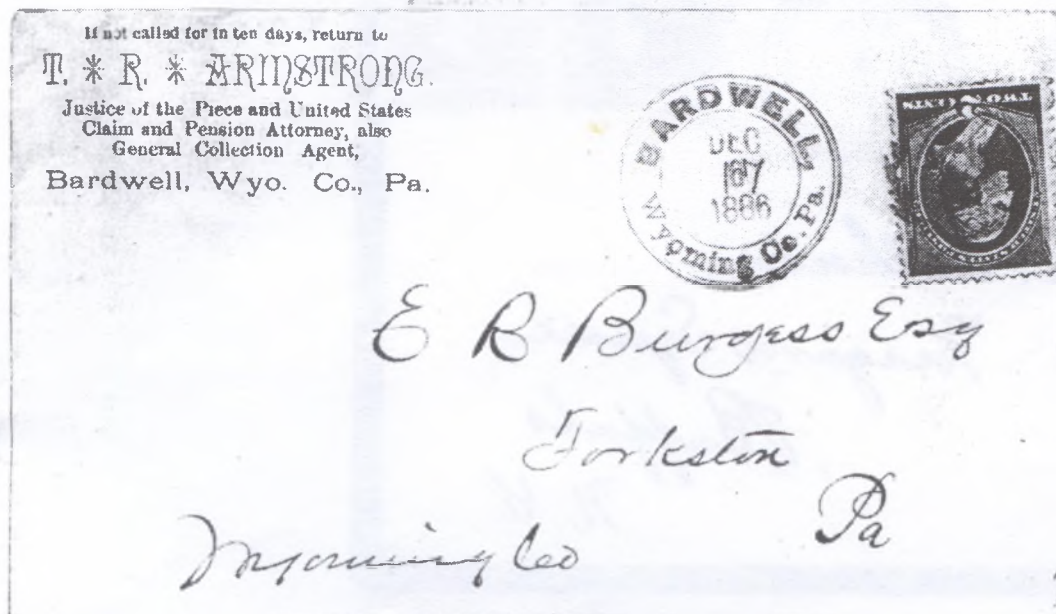 If not called for in ten days, return to
T. * R. * ARMSTRONG.
Justice of the Piece and United States
Claim and Pension Attorney, also
General Collection Agent,
Bardwell, Wyo. Co., Pa.
BARDWELL,
DEC
1886
Wyoming Co. Pa.
E R Burgess Esq
Forkston
Pa
Wyoming Co